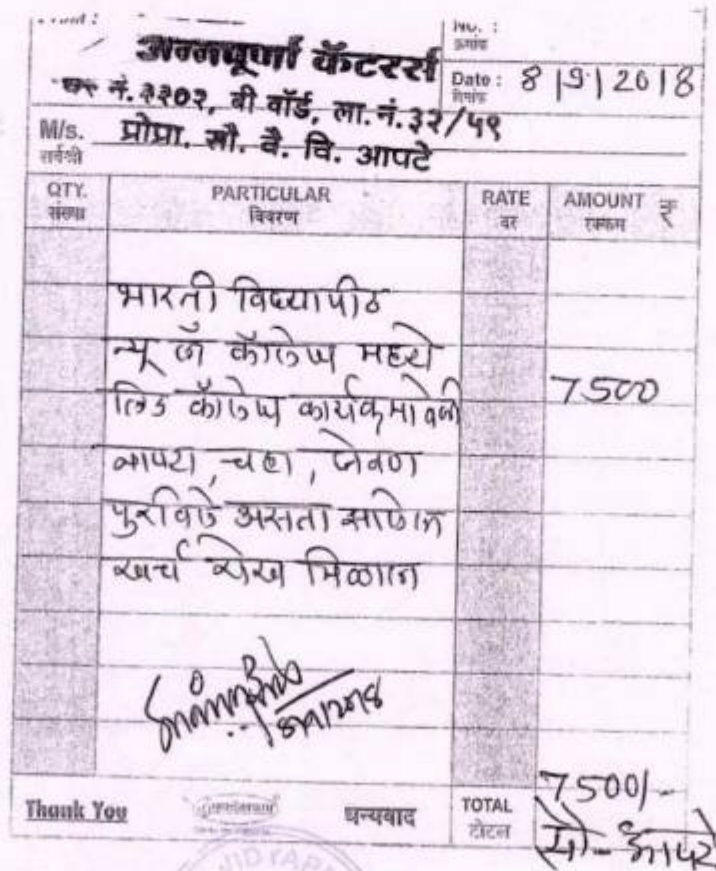 NO. :
क्रमांक
अन्नपूर्णा कॅटरर्स
Date : 8/9/2018
दिनांक
घर नं. २२०२, बी वॉर्ड, ला. नं. ३२/५९
M/s. प्रोप्रा. सौ. वै. वि. आपटे
सर्वश्री
QTY. PARTICULAR RATE AMOUNT ₹
संख्या विवरण दर रक्कम
भारती विद्यापीठ
न्यू लॉ कॉलेज मध्ये
लिड कॉलेज कार्यक्रमावेळी 7500
चहा, जेवण
पुरविले असता
खर्च रोख मिळाला
7500/-
Thank You धन्यवाद TOTAL
टोटल
सौ- आपटे